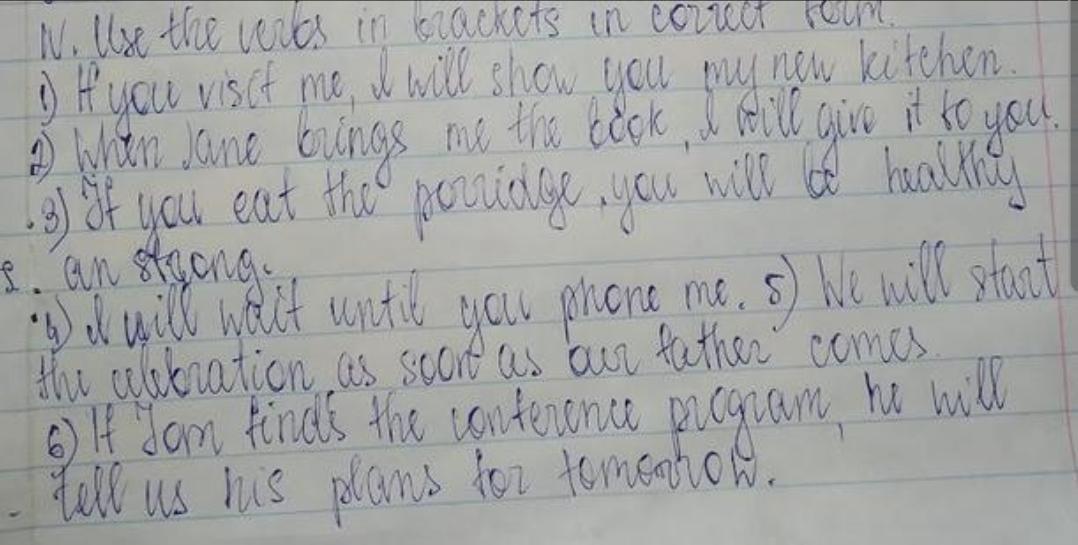 IV. Use the verbs in brackets in correct form.
1) If you visit me, I will show you my new kitchen.
2) When Jane brings me the book, I will give it to you.
3) If you eat the porridge, you will be healthy
an strong.
4) I will wait until you phone me. 5) We will start
the celebration as soon as our father comes.
6) If Tom finds the conference program, he will
tell us his plans for tomorrow.